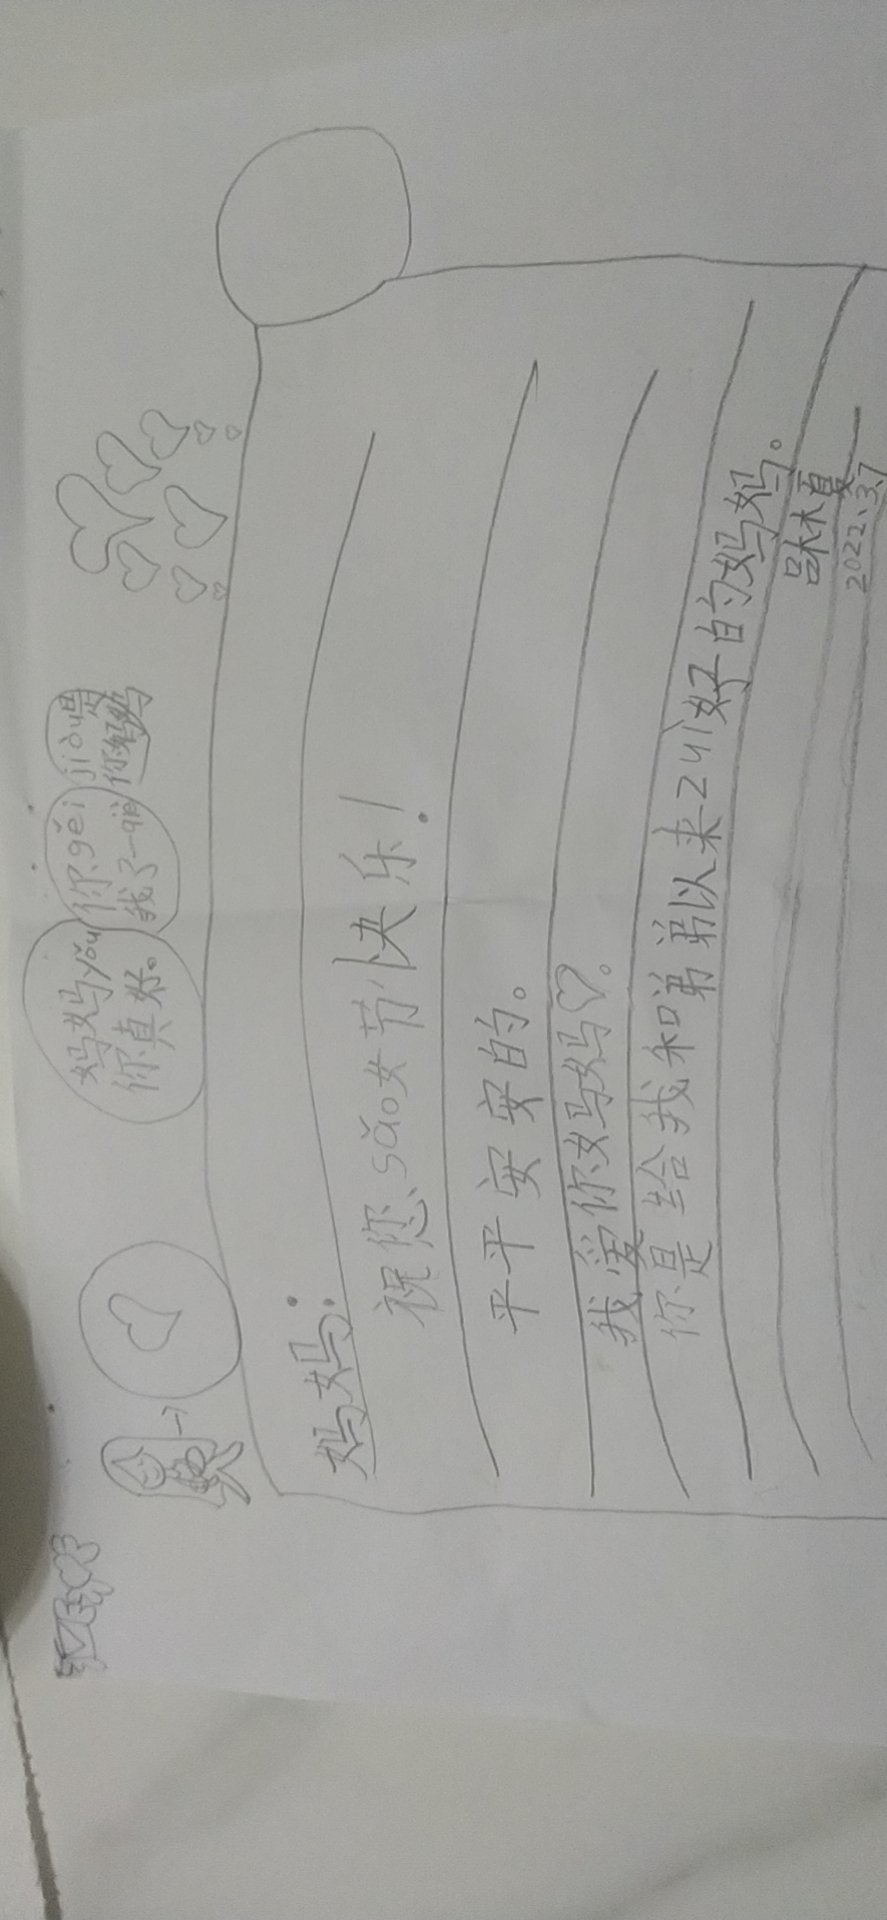 妈妈yǒu
你真好。
你gěi
我了一qiè
jiòu是
你妈妈
妈妈:
祝您sǎo女节快乐!
平平安安的。
我爱你妈妈♡。
你是给我和弟弟以来zuì好的妈妈。
2022.3.7